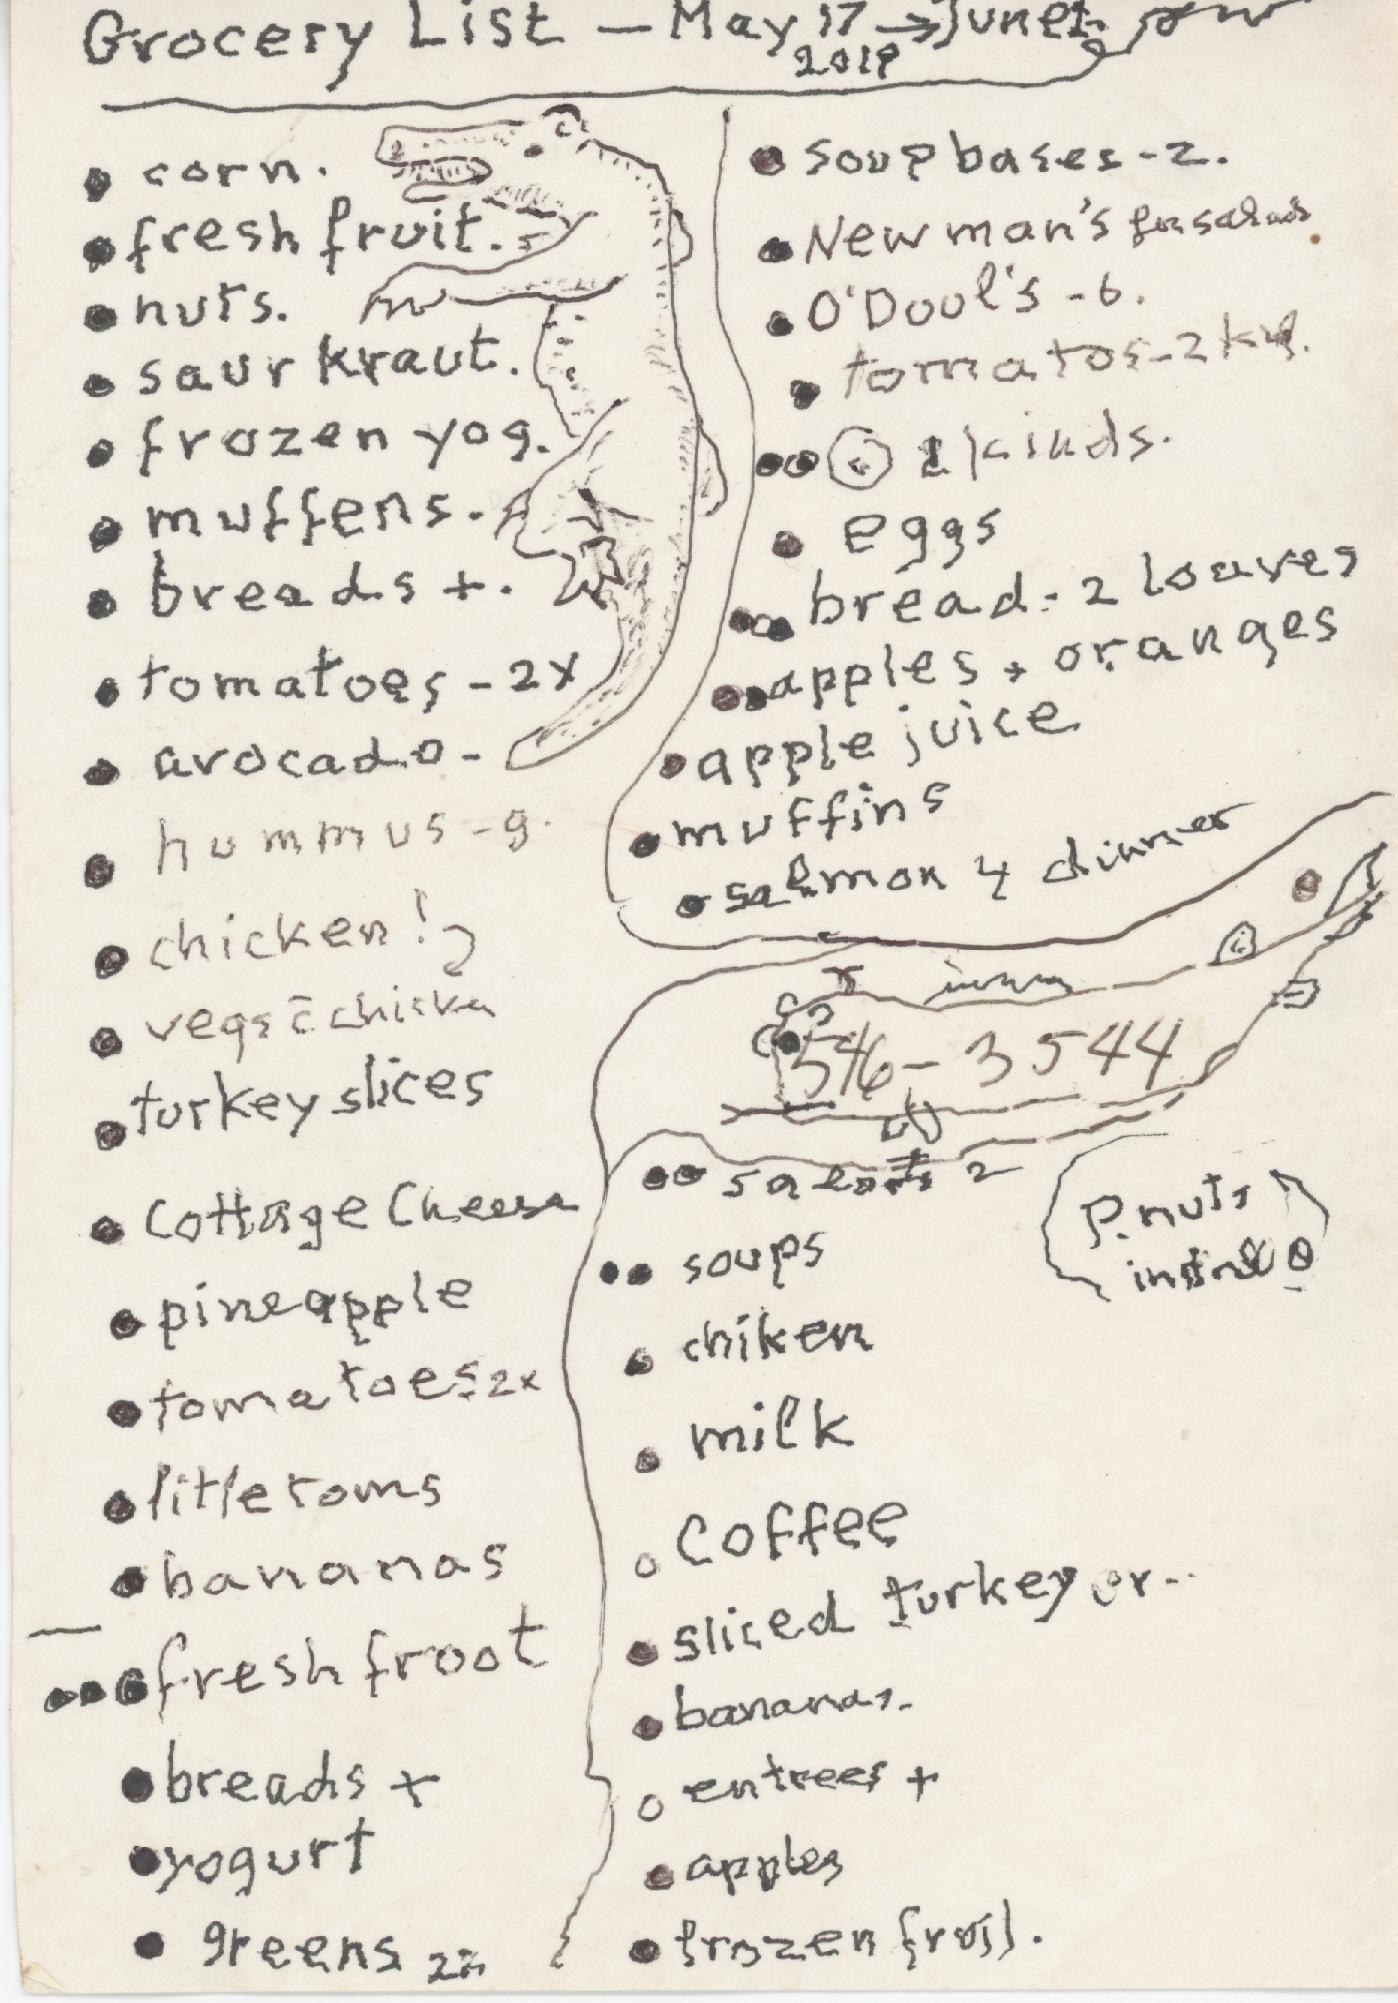 Grocery List – May 17 → June 1.
2018
corn.
fresh fruit.
nuts.
saur kraut.
frozen yog.
muffens.
breads +.
tomatoes - 2x
avocado -
hummus - g.
chicken!
vegs c̄ chicken
turkey slices
Cottage Cheese
pineapple
tomatoes 2x
litle toms
bananas
fresh froot
breads +
yogurt
greens 2x
soup bases - 2.
Newman's for salads
O'Doul's - 6.
tomatos - 2 kg.
2 kinds.
eggs
bread - 2 loaves
apples + oranges
apple juice
muffins
salmon 4 dinner
546-3544
salads 2
P. nuts
soups
chiken
milk
Coffee
sliced turkey or..
bananas.
entrees +
apples
frozen